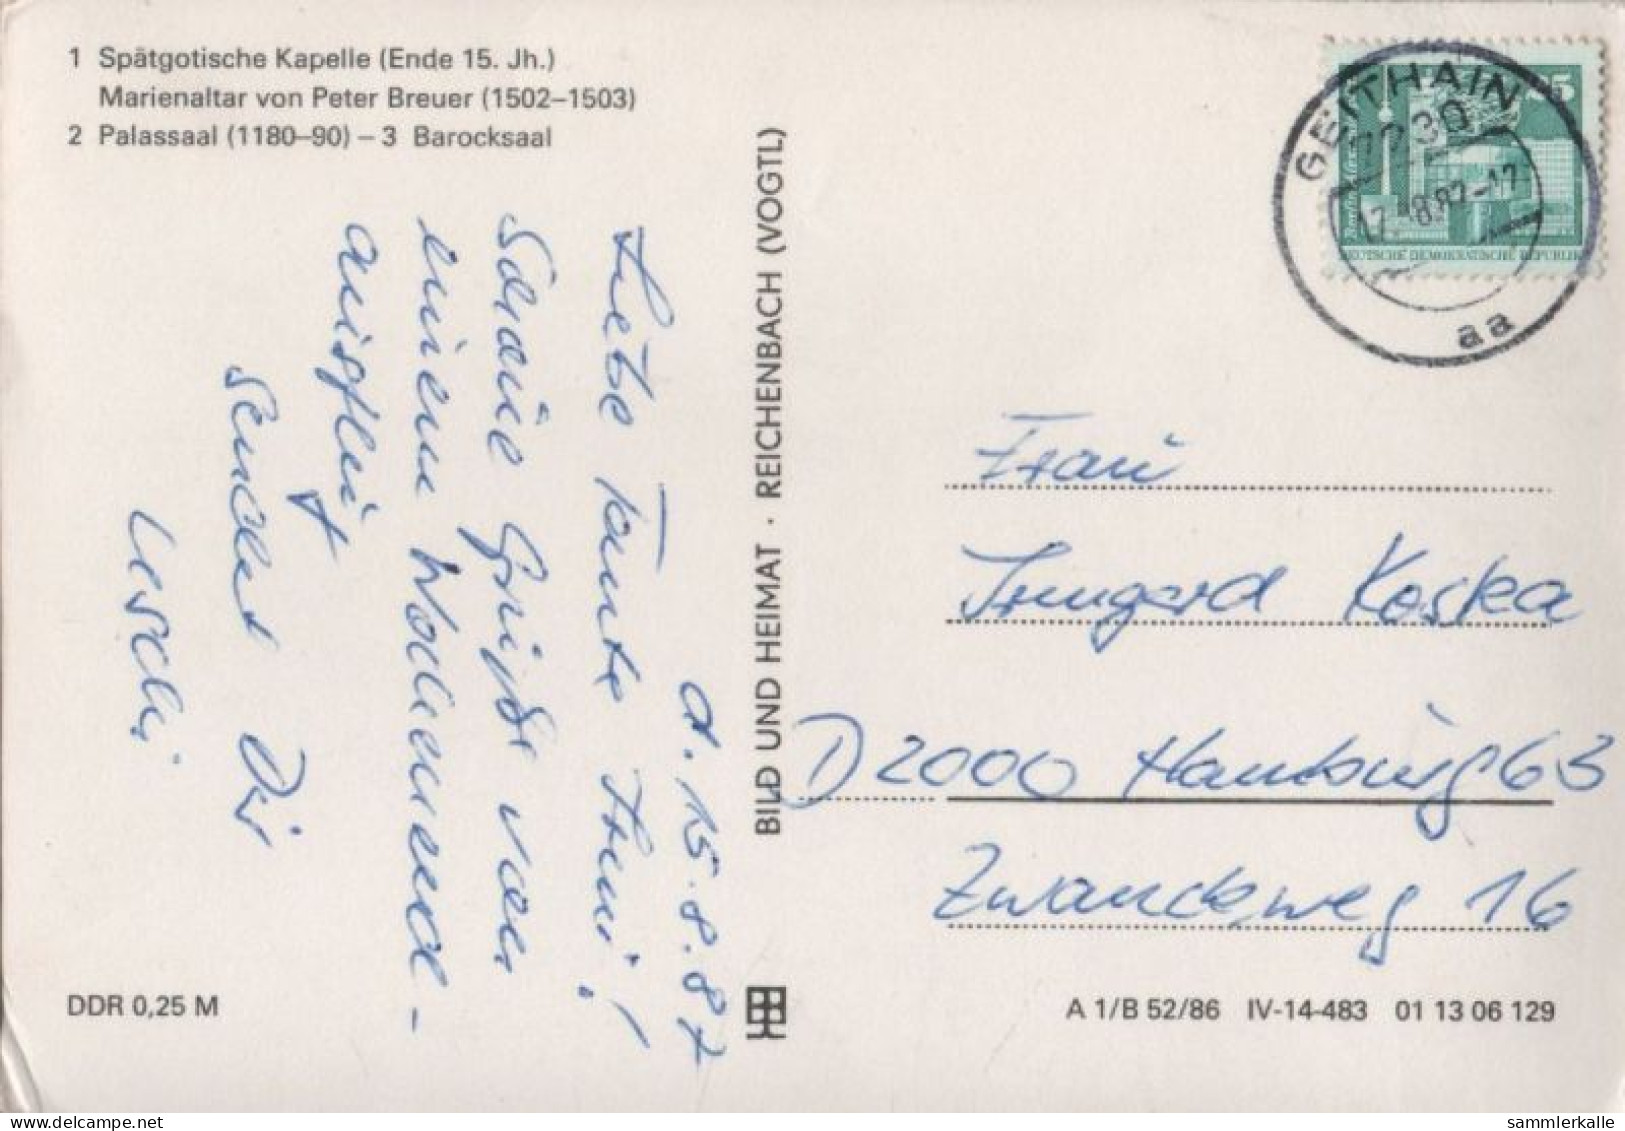 1 Spätgotische Kapelle (Ende 15. Jh.)
Marienaltar von Peter Breuer (1502–1503)
2 Palassaal (1180–90) – 3 Barocksaal
d. 15.8.87
Liebe Tante Irmi!
Schöne Grüße von
einem Wochenend-
ausflug
sendet Dir
Uschi
DDR 0,25 M
BILD UND HEIMAT · REICHENBACH (VOGTL)
GEITHAIN
7230
17.-8.87-17
aa
DEUTSCHE DEMOKRATISCHE REPUBLIK
Frau
Irmgard Koska
D 2000 Hamburg 63
Zwanckweg 16
A 1/B 52/86 IV-14-483 01 13 06 129
sammlerkalle